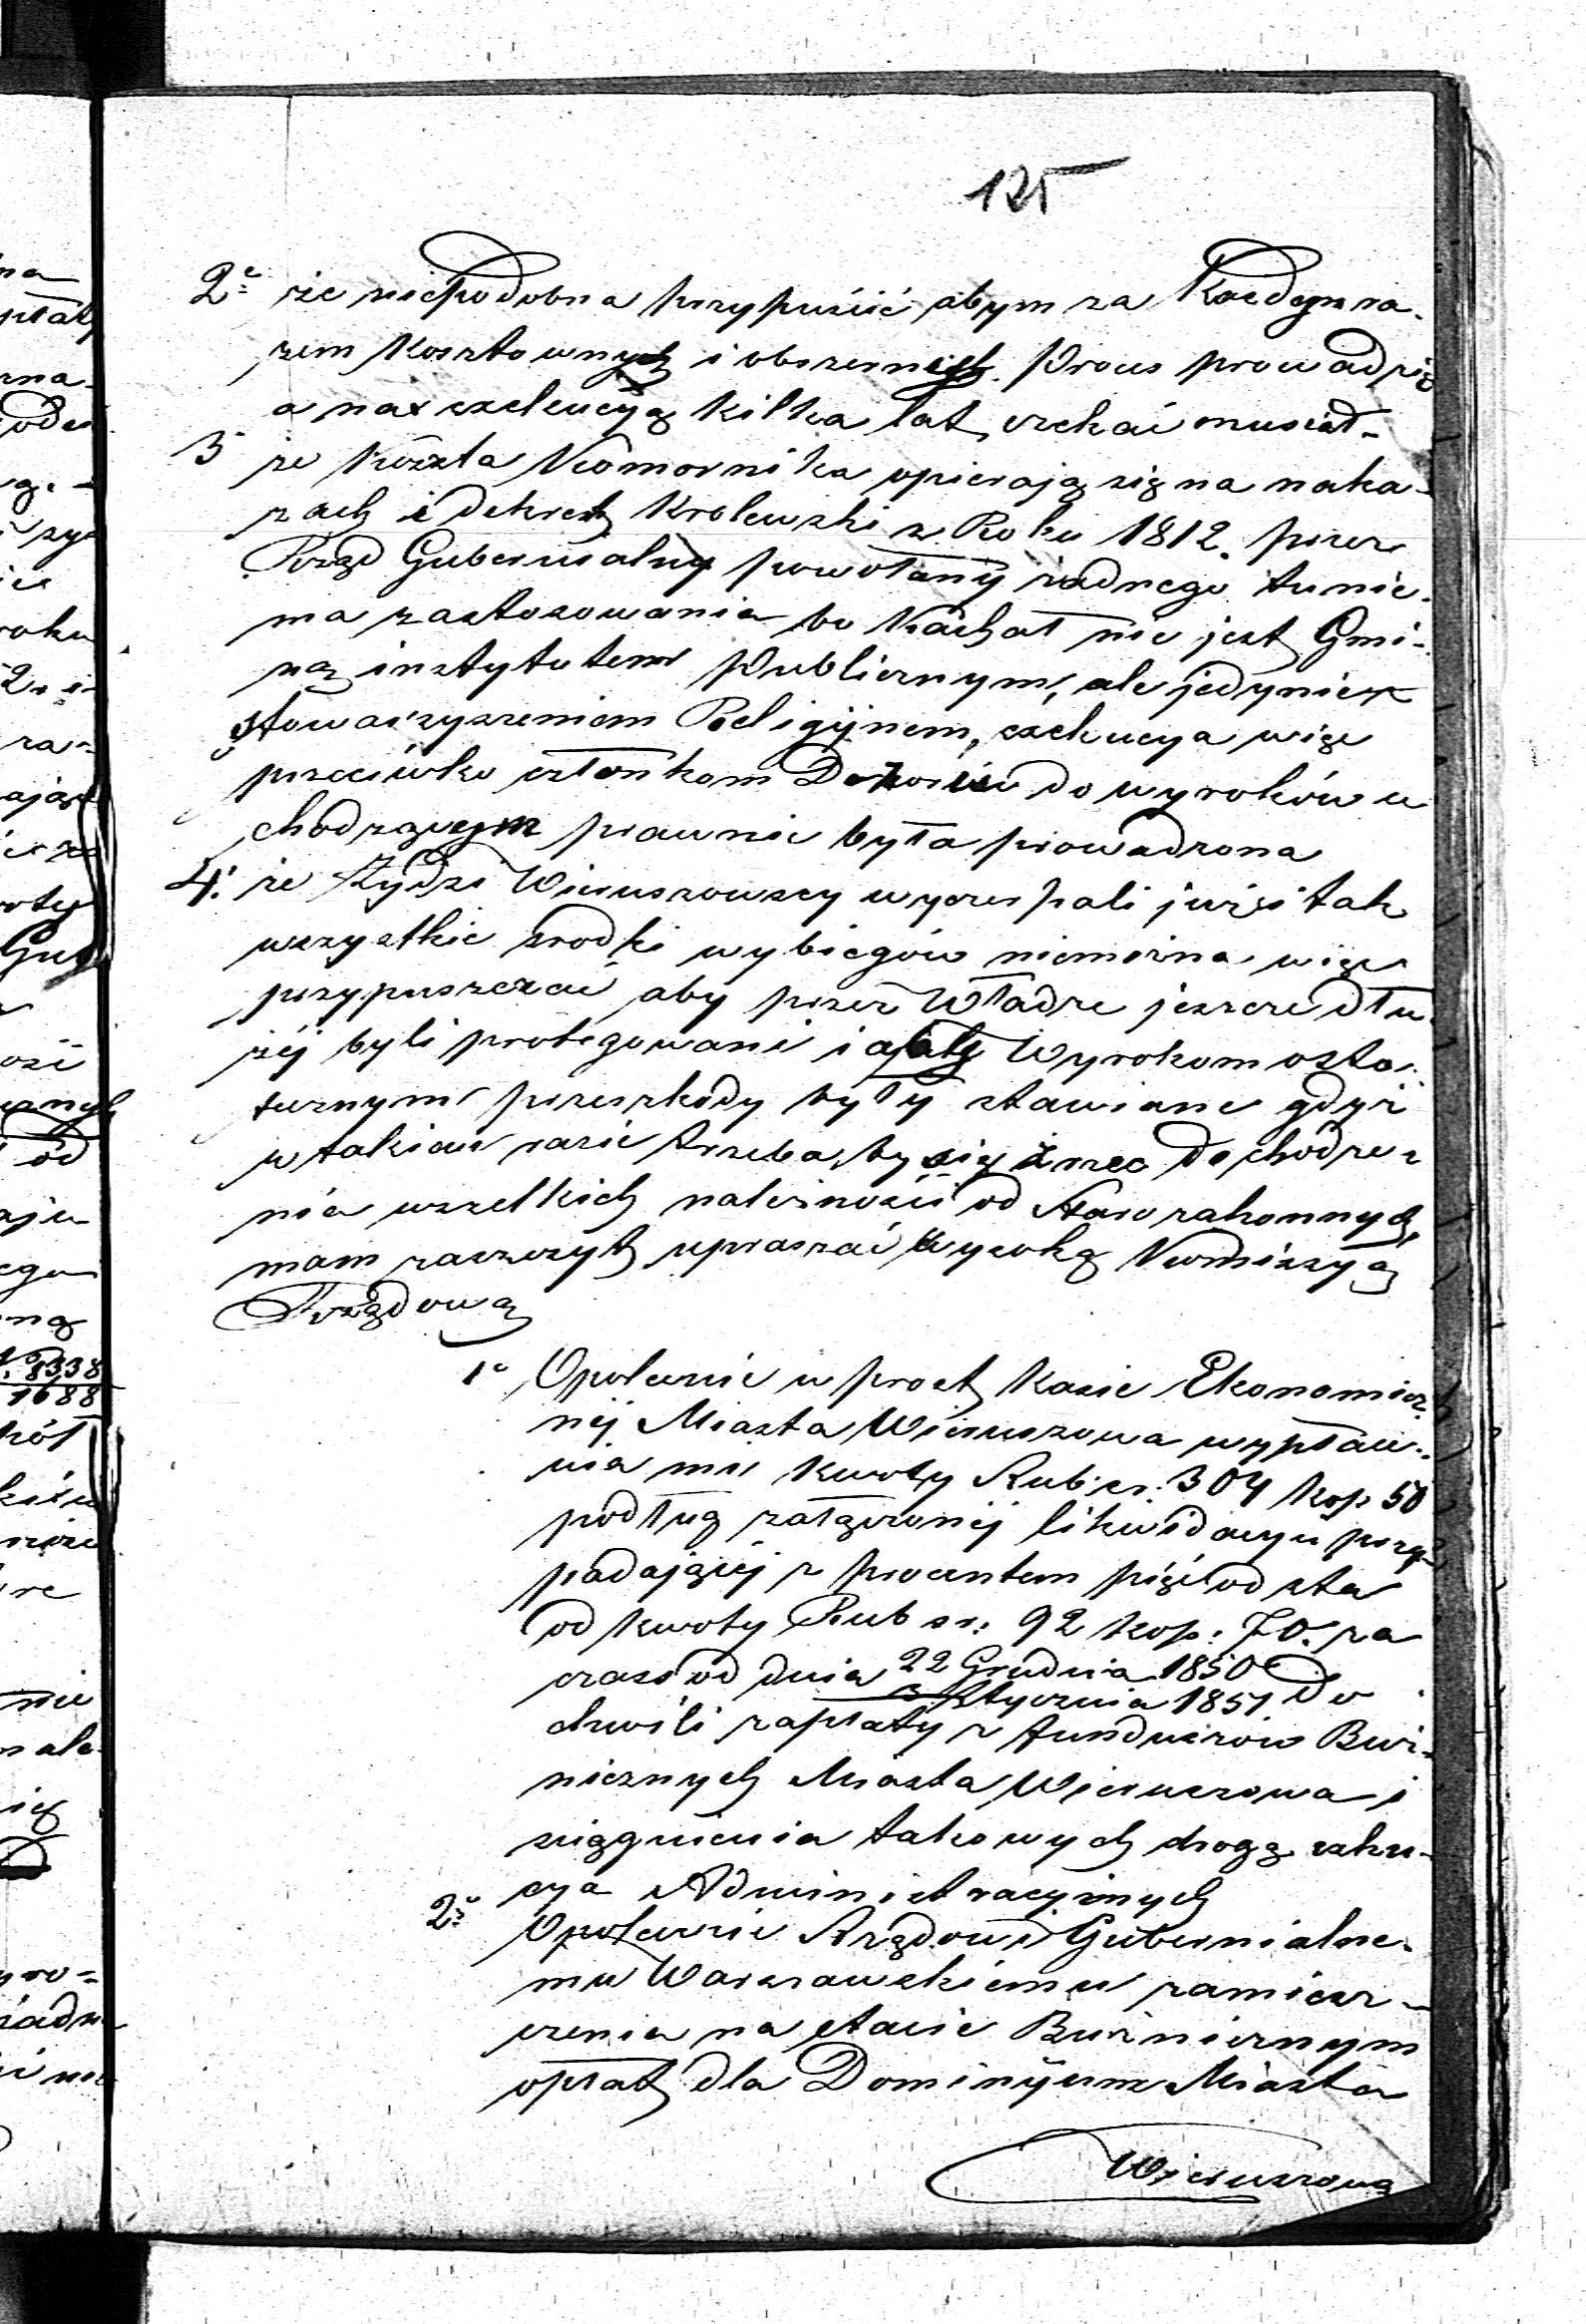 125
2e że niepodobna przypuścić abym za Każdym ra-
zem kosztownych i obszernych Proces prowadzić
a na exekucyą kilka lat czekać musiał-
3 że koszta Komornika opierają się na naka-
zach i dekret Krolewski z Roku 1812. przez
Rząd Gubernialny powołany żadnego tu nie
ma zastosowania bo Kachał nie jest Gmi-
ną instytutem Publicznym, ale jedynie
stowarzyszeniem Religijnem, exekucya więc
przeciwko członkom Dozoru do wyroków w
chodzącym prawnie była prowadzona
4. że Żydzi Wieruszowscy wyczerpali już i tak
wszystkie srodki wybiegów niemożna więc
przypuszczać aby przez Władze jeszcze dłu
żéj byli protegowani i aby Wyrokom osta-
tecznym przeszkody były stawiane gdyż
w takim razie trzeba by się zrzec dochodze-
nia wszelkich należności od Starozakonnych,
mam zaszczyt upraszać Wysoką Kommissyą
Rządową
1e Opolecenie w prost Kasie Ekonomicz-
néj Miasta Wieruszowa wypłace-
nia mi kwoty Rub sr: 304 kop 50
podług załączonéj likwidacyi przy-
padającéj z procentem pięć od sta
od kwoty Rub sr: 92 kop: 70. za
czas od dnia 22 Grudnia 1850 do
3 Stycznia 1851
chwili zapłaty z funduszów Buż-
nicznych Miasta Wieruszowa i
ściągnienia takowych drogą exku-
cya Administracyinych
2e Opolecenie Rządowi Gubernialne-
mu Warszawskiemu zamiesz-
czenia na etacie Bużnicznym
opłat dla Dominijum Miasta
Wieruszowa